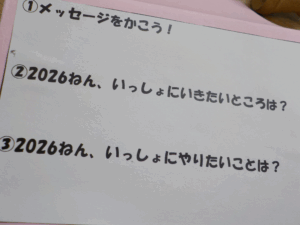 ①メッセージをかこう！
②2026ねん、いっしょにいきたいところは？
③2026ねん、いっしょにやりたいことは？